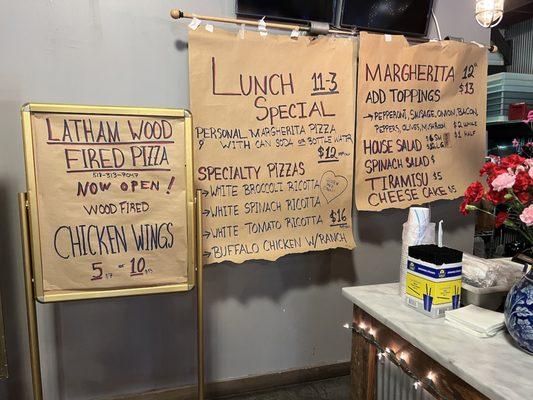 LATHAM WOOD
FIRED PIZZA
518-313-7047
NOW OPEN!
WOOD FIRED
CHICKEN WINGS
LUNCH 11-3
SPECIAL
PERSONAL MARGHERITA PIZZA
WITH CAN SODA OR BOTTLE WATR
$12
SPECIALTY PIZZAS
→ WHITE BROCCOLI RICOTTA
→ WHITE SPINACH RICOTTA
→ WHITE TOMATO RICOTTA
$16
→ BUFFALO CHICKEN W/ RANCH
MARGHERITA 12"
$13
ADD TOPPINGS
→ PEPPERONI, SAUSAGE, ONION, BACON,
PEPPERS, OLIVES, MUSHROOM
$2 WHOLE
$1 HALF
HOUSE SALAD
SPINACH SALAD
TIRAMISU
CHEESE CAKE